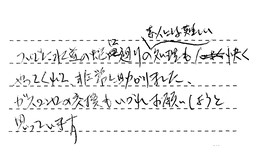 素人には難しい
ついでに水道の蛇口廻りの処理も快く
やってくれて非常に助かりました、
ガスコンロの交換もいづれお願いしようと
思っています